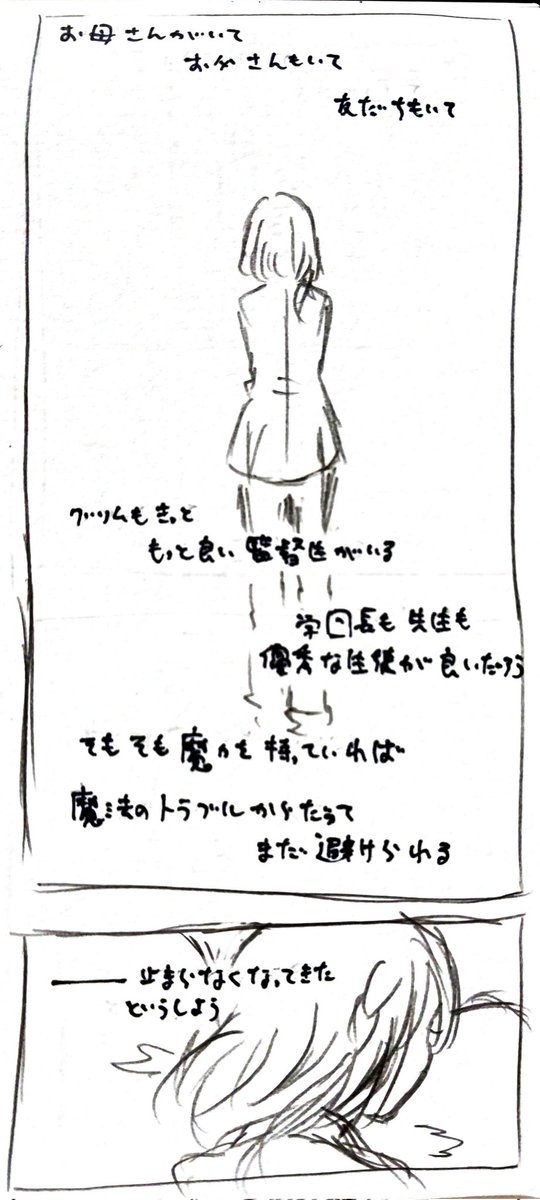 お母さんがいて
お父さんもいて
友だちもいて
グリムもきっと
もっと良い監督生がいる
学園長も先生も
優秀な生徒が良いだろう
そもそも魔力を持っていれば
魔法のトラブルからだって
まだ避けられる
―――止まらなくなってきた
どうしよう